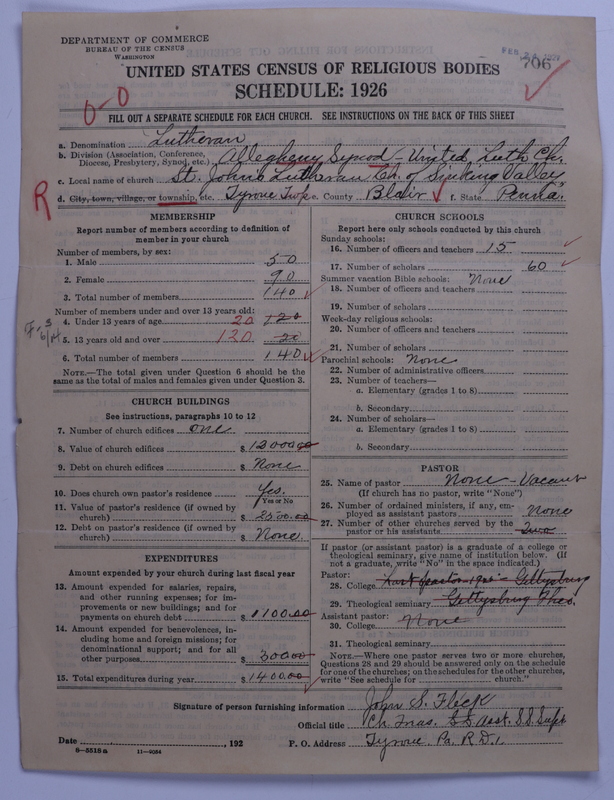 DEPARTMENT OF COMMERCE
BUREAU OF THE CENSUS
WASHINGTON
FEB 24 1927
706
UNITED STATES CENSUS OF RELIGIOUS BODIES
SCHEDULE: 1926
0-0
FILL OUT A SEPARATE SCHEDULE FOR EACH CHURCH. SEE INSTRUCTIONS ON THE BACK OF THIS SHEET
a. Denomination Lutheran
b. Division (Association, Conference, Diocese, Presbytery, Synod, etc.) Allegheny Synod United Luth Ch.
c. Local name of church St. John's Lutheran Ch. of Sinking Valley
R
d. City, town, village, or township, etc. Tyrone Twp. e. County Blair f. State Penna.
MEMBERSHIP
Report number of members according to definition of
member in your church
Number of members, by sex:
1. Male 50
2. Female 90
3. Total number of members 140
Number of members under and over 13 years old:
4. Under 13 years of age 20 120
5. 13 years old and over 120 20
6. Total number of members 140
NOTE.—The total given under Question 6 should be the
same as the total of males and females given under Question 3.
CHURCH BUILDINGS
See instructions, paragraphs 10 to 12
7. Number of church edifices one
8. Value of church edifices $ 12000.00
9. Debt on church edifices $ None
10. Does church own pastor's residence Yes.
Yes or No
11. Value of pastor's residence (if owned by
church) $ 2500.00
12. Debt on pastor's residence (if owned by
church) $ None.
EXPENDITURES
Amount expended by your church during last fiscal year
13. Amount expended for salaries, repairs,
and other running expenses; for im-
provements or new buildings; and for
payments on church debt $ 1100.00
14. Amount expended for benevolences, in-
cluding home and foreign missions; for
denominational support; and for all
other purposes $ 300.00
15. Total expenditures during year $ 1400.00
CHURCH SCHOOLS
Report here only schools conducted by this church
Sunday schools:
16. Number of officers and teachers 15
17. Number of scholars 60
Summer vacation Bible schools: None
18. Number of officers and teachers
19. Number of scholars
Week-day religious schools:
20. Number of officers and teachers
21. Number of scholars
Parochial schools: None
22. Number of administrative officers
23. Number of teachers—
a. Elementary (grades 1 to 8)
b. Secondary
24. Number of scholars—
a. Elementary (grades 1 to 8)
b. Secondary
PASTOR
25. Name of pastor None - Vacant
(If church has no pastor, write "None")
26. Number of ordained ministers, if any, em-
ployed as assistant pastors None
27. Number of other churches served by the
pastor or his assistants Two
If pastor (or assistant pastor) is a graduate of a college or
theological seminary, give name of institution below. (If
not a graduate, write "No" in the space indicated.)
Pastor:
28. College Last pastor Gettysburg
29. Theological seminary Gettysburg Theo.
Assistant pastor:
30. College None
31. Theological seminary
NOTE.—Where one pastor serves two or more churches,
Questions 28 and 29 should be answered only on the schedule
for one of the churches; on the schedules for the other churches,
write "See schedule for church."
Signature of person furnishing information John S. Fleck
Official title Ch. Treas. S.S. Asst. S.S. Supt
Date , 192 P. O. Address Tyrone Pa. R.D.1.
8-5515a 11-4064